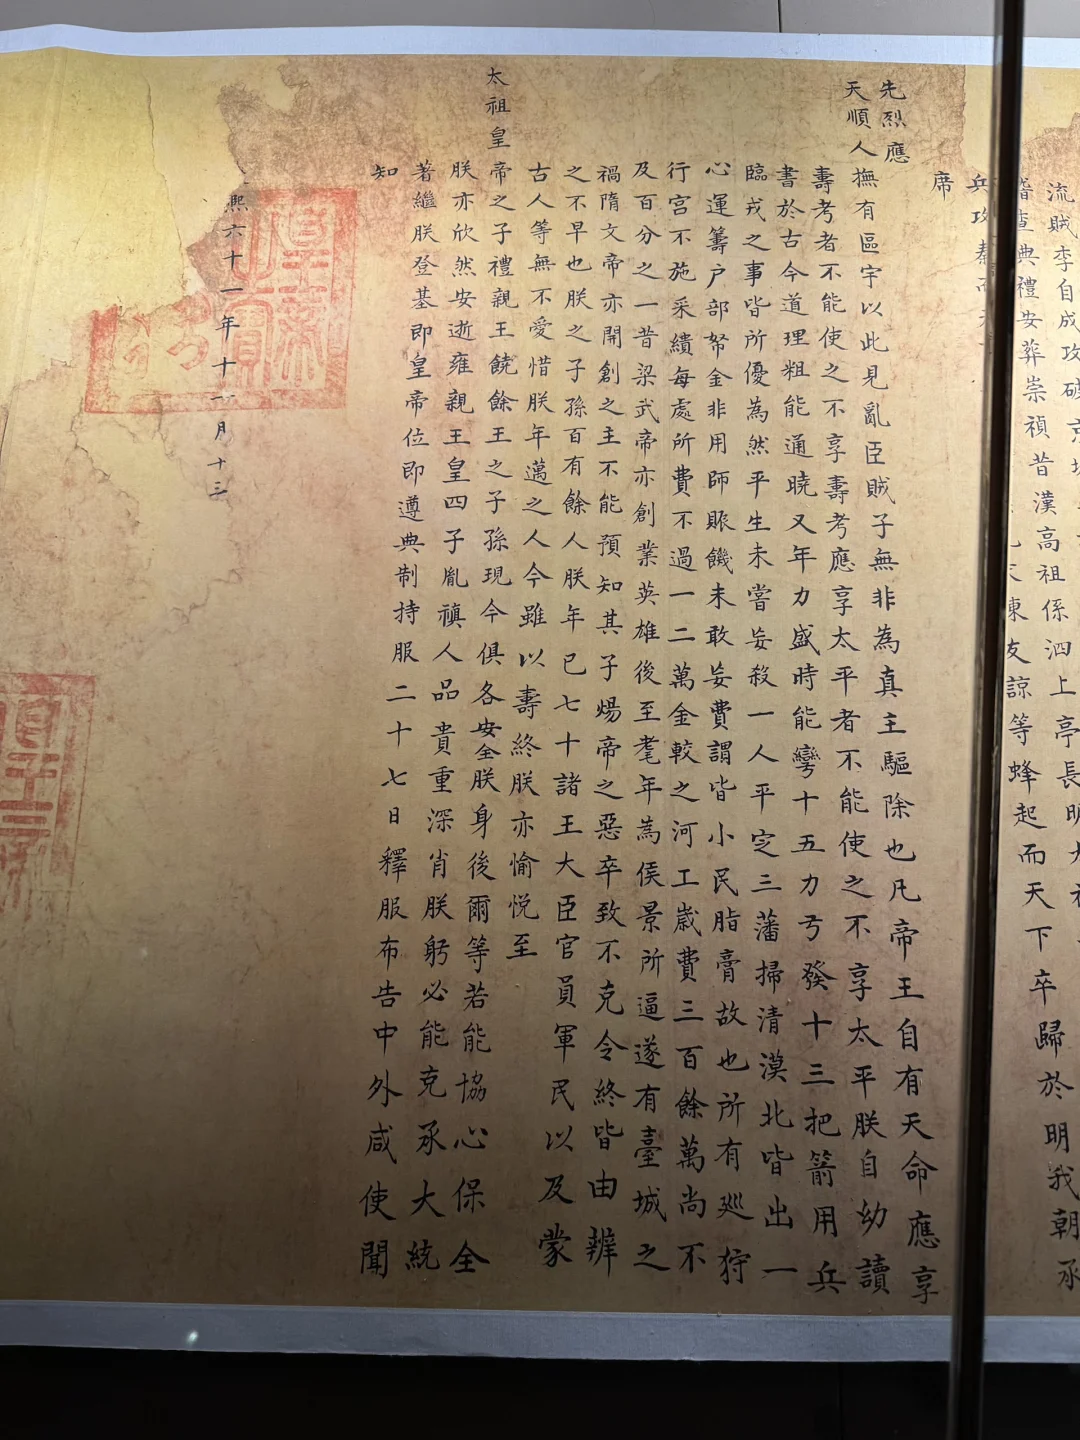 流賊李自成攻破京
稽查典禮安葬崇禎昔漢高祖係泗上亭長明太
兵攻秦而 陳友諒等蜂起而天下卒歸於明我朝承
席
先烈應
天順人撫有區宇以此見亂臣賊子無非為真主驅除也凡帝王自有天命應享
壽考者不能使之不享壽考應享太平者不能使之不享太平朕自幼讀
書於古今道理粗能通曉又年力盛時能彎十五力弓發十三把箭用兵
臨戎之事皆所優為然平生未嘗妄殺一人平定三藩掃清漠北皆出一
心運籌户部帑金非用師賑饑未敢妄費謂皆小民脂膏故也所有廵狩
行宮不施采繢每處所費不過一二萬金較之河工歲費三百餘萬尚不
及百分之一昔梁武帝亦創業英雄後至耄年為侯景所逼遂有臺城之
禍隋文帝亦開創之主不能預知其子煬帝之惡卒致不克令終皆由辨
之不早也朕之子孫百有餘人朕年已七十諸王大臣官員軍民以及蒙
古人等無不愛惜朕年邁之人今雖以壽終朕亦愉悅至
太祖皇帝之子禮親王饒餘王之子孫現今俱各安全朕身後爾等若能協心保全
朕亦欣然安逝雍親王皇四子胤禛人品貴重深肖朕躬必能克承大統
著繼朕登基即皇帝位即遵典制持服二十七日釋服布告中外咸使聞
知
熙六十一年十一月十三